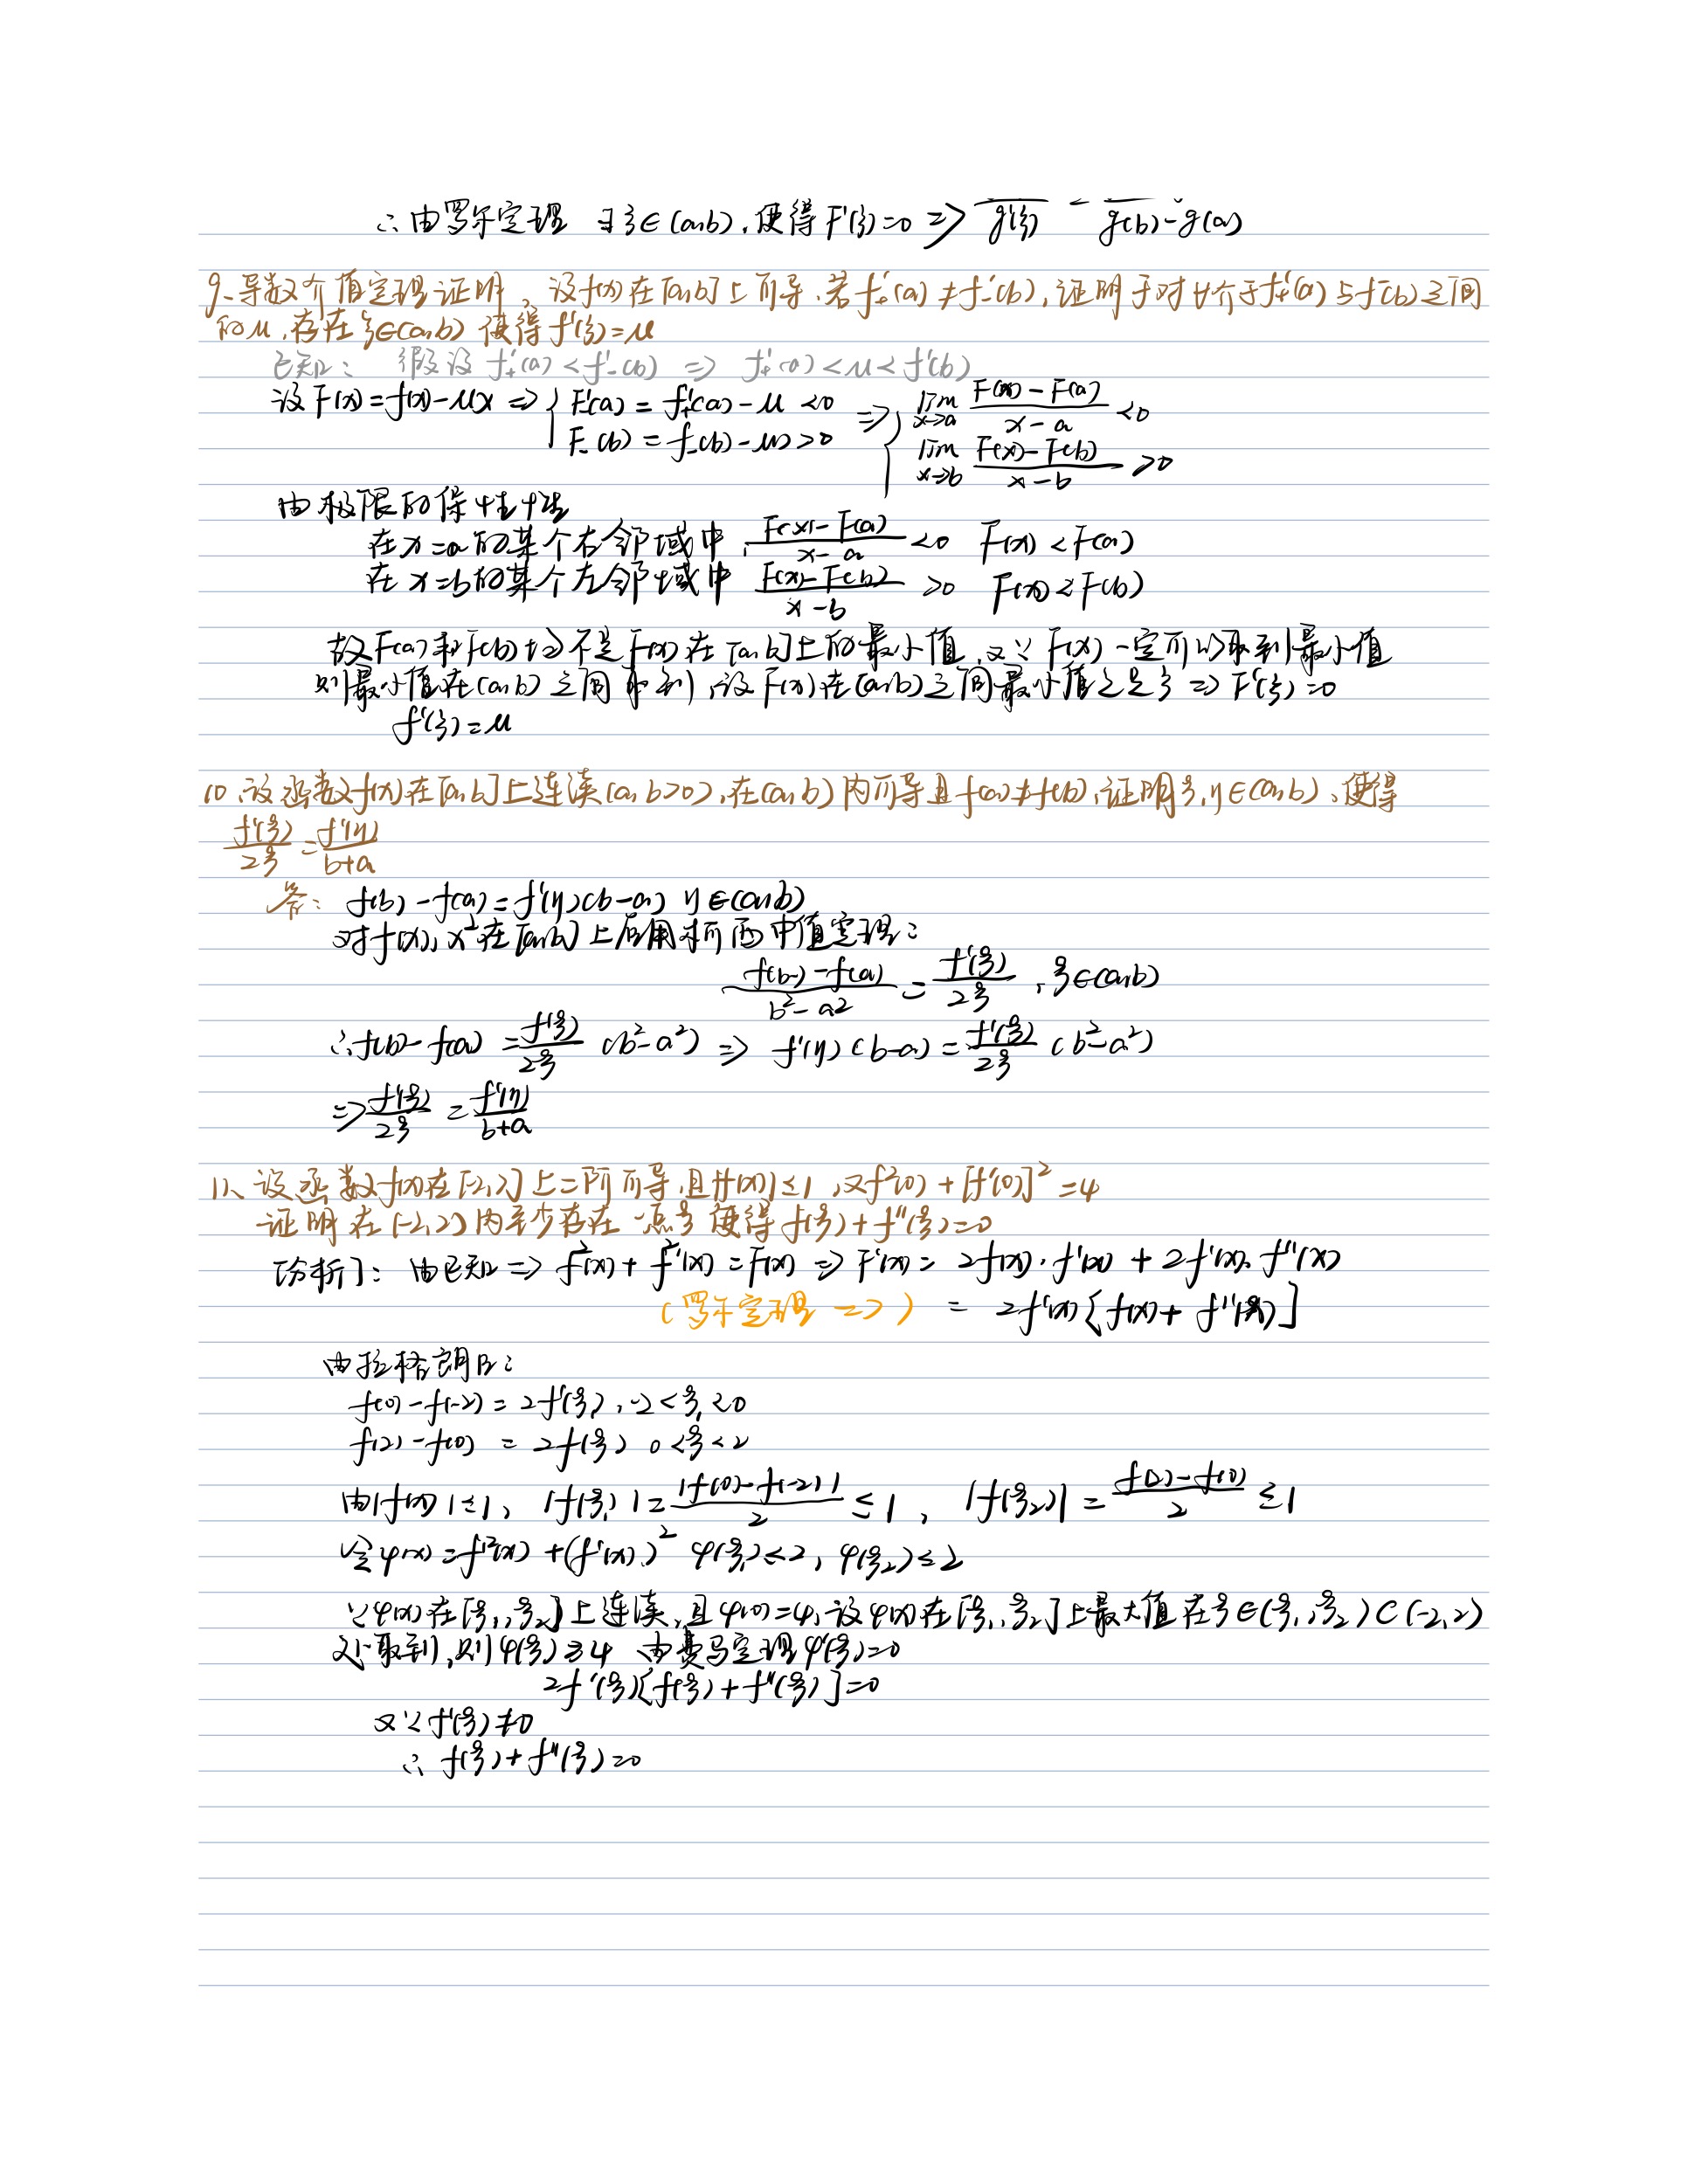 ∴由罗尔定理 ∃ξ∈(a,b),使得F'(ξ)=0 ⇒ g'(ξ) = g(b)-g(a)
9、导数介值定理证明、设f(x)在[a,b]上可导.若f'₊(a)≠f'₋(b),证明于对∀介于f'₊(a)与f'₋(b)之间
的μ,存在ξ∈(a,b) 使得f'(ξ)=μ
已知: 假设 f'₊(a)<f'₋(b) ⇒ f'₊(a)<μ<f'(b)
设F(x)=f(x)-μx ⇒ { F'(a)=f'₊(a)-μ<0 ⇒ { lim x→a (F(x)-F(a))/(x-a) <0
F₋(b)=f₋(b)-μ>0 lim x→b (F(x)-F(b))/(x-b) >0
由极限的保性性
在x=a的某个右邻域中, (F(x)-F(a))/(x-a) <0 F(x)<F(a)
在x=b的某个左邻域中 (F(x)-F(b))/(x-b) >0 F(x)<F(b)
故F(a)和F(b)均不是F(x)在[a,b]上的最小值,又∵F(x)一定可以取到最小值
则最小值在(a,b)之间取到,设F(x)在(a,b)之间最小值之是ξ ⇒ F'(ξ)=0
f'(ξ)=μ
10、设函数f(x)在[a,b]上连续(a,b>0),在(a,b)内可导且f(a)≠f(b),证明ξ,η∈(a,b),使得
f'(ξ)/2ξ = f'(η)/(b+a)
答: f(b)-f(a)=f'(η)(b-a) η∈(a,b)
对f(x),x²在[a,b]上应用柯西中值定理:
(f(b)-f(a))/(b²-a²) = f'(ξ)/2ξ ,ξ∈(a,b)
∴f(b)-f(a) = f'(ξ)/2ξ (b²-a²) ⇒ f'(η)(b-a) = f'(ξ)/2ξ (b²-a²)
⇒ f'(ξ)/2ξ = f'(η)/(b+a)
11、设函数f(x)在[-2,2]上二阶可导,且|f(x)|≤1,又f²(0)+[f'(0)]²=4
证明在(-2,2)内至少存在一点ξ使得f(ξ)+f''(ξ)=0
[分析]: 由已知 ⇒ f²(x)+f'²(x)=F(x) ⇒ F'(x)= 2f(x)·f'(x)+2f'(x)·f''(x)
(罗尔定理 ⇒) = 2f'(x)[f(x)+f''(x)]
由拉格朗日:
f(0)-f(-2)=2f'(ξ₁),-2<ξ₁<0
f(2)-f(0) = 2f(ξ) 0<ξ<2
由|f(x)|≤1, |f(ξ₁)|=|f(0)-f(-2)|/2 ≤1, |f(ξ₂)|=(f(2)-f(0))/2 ≤1
令φ(x)=f²(x)+(f'(x))² φ(ξ₁)≤2, φ(ξ₂)≤2
∵φ(x)在[ξ₁,ξ₂]上连续,且φ(0)=4,设φ(x)在[ξ₁,ξ₂]上最大值在ξ∈(ξ₁,ξ₂)⊂(-2,2)
处取到,则φ(ξ)≥4 由费马定理φ'(ξ)=0
2f'(ξ)[f(ξ)+f''(ξ)]=0
又∵f'(ξ)≠0
∴ f(ξ)+f''(ξ)=0